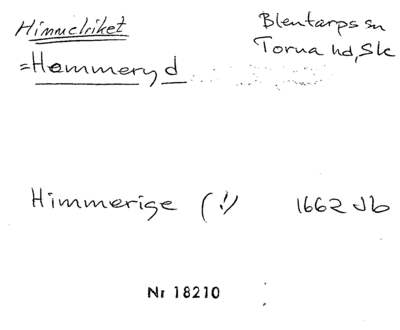 Himmelriket
Blentarps sn
=Hemmeryd
Torna hd, Sk
Himmerige (!) 1662 Jb
Nr 18210